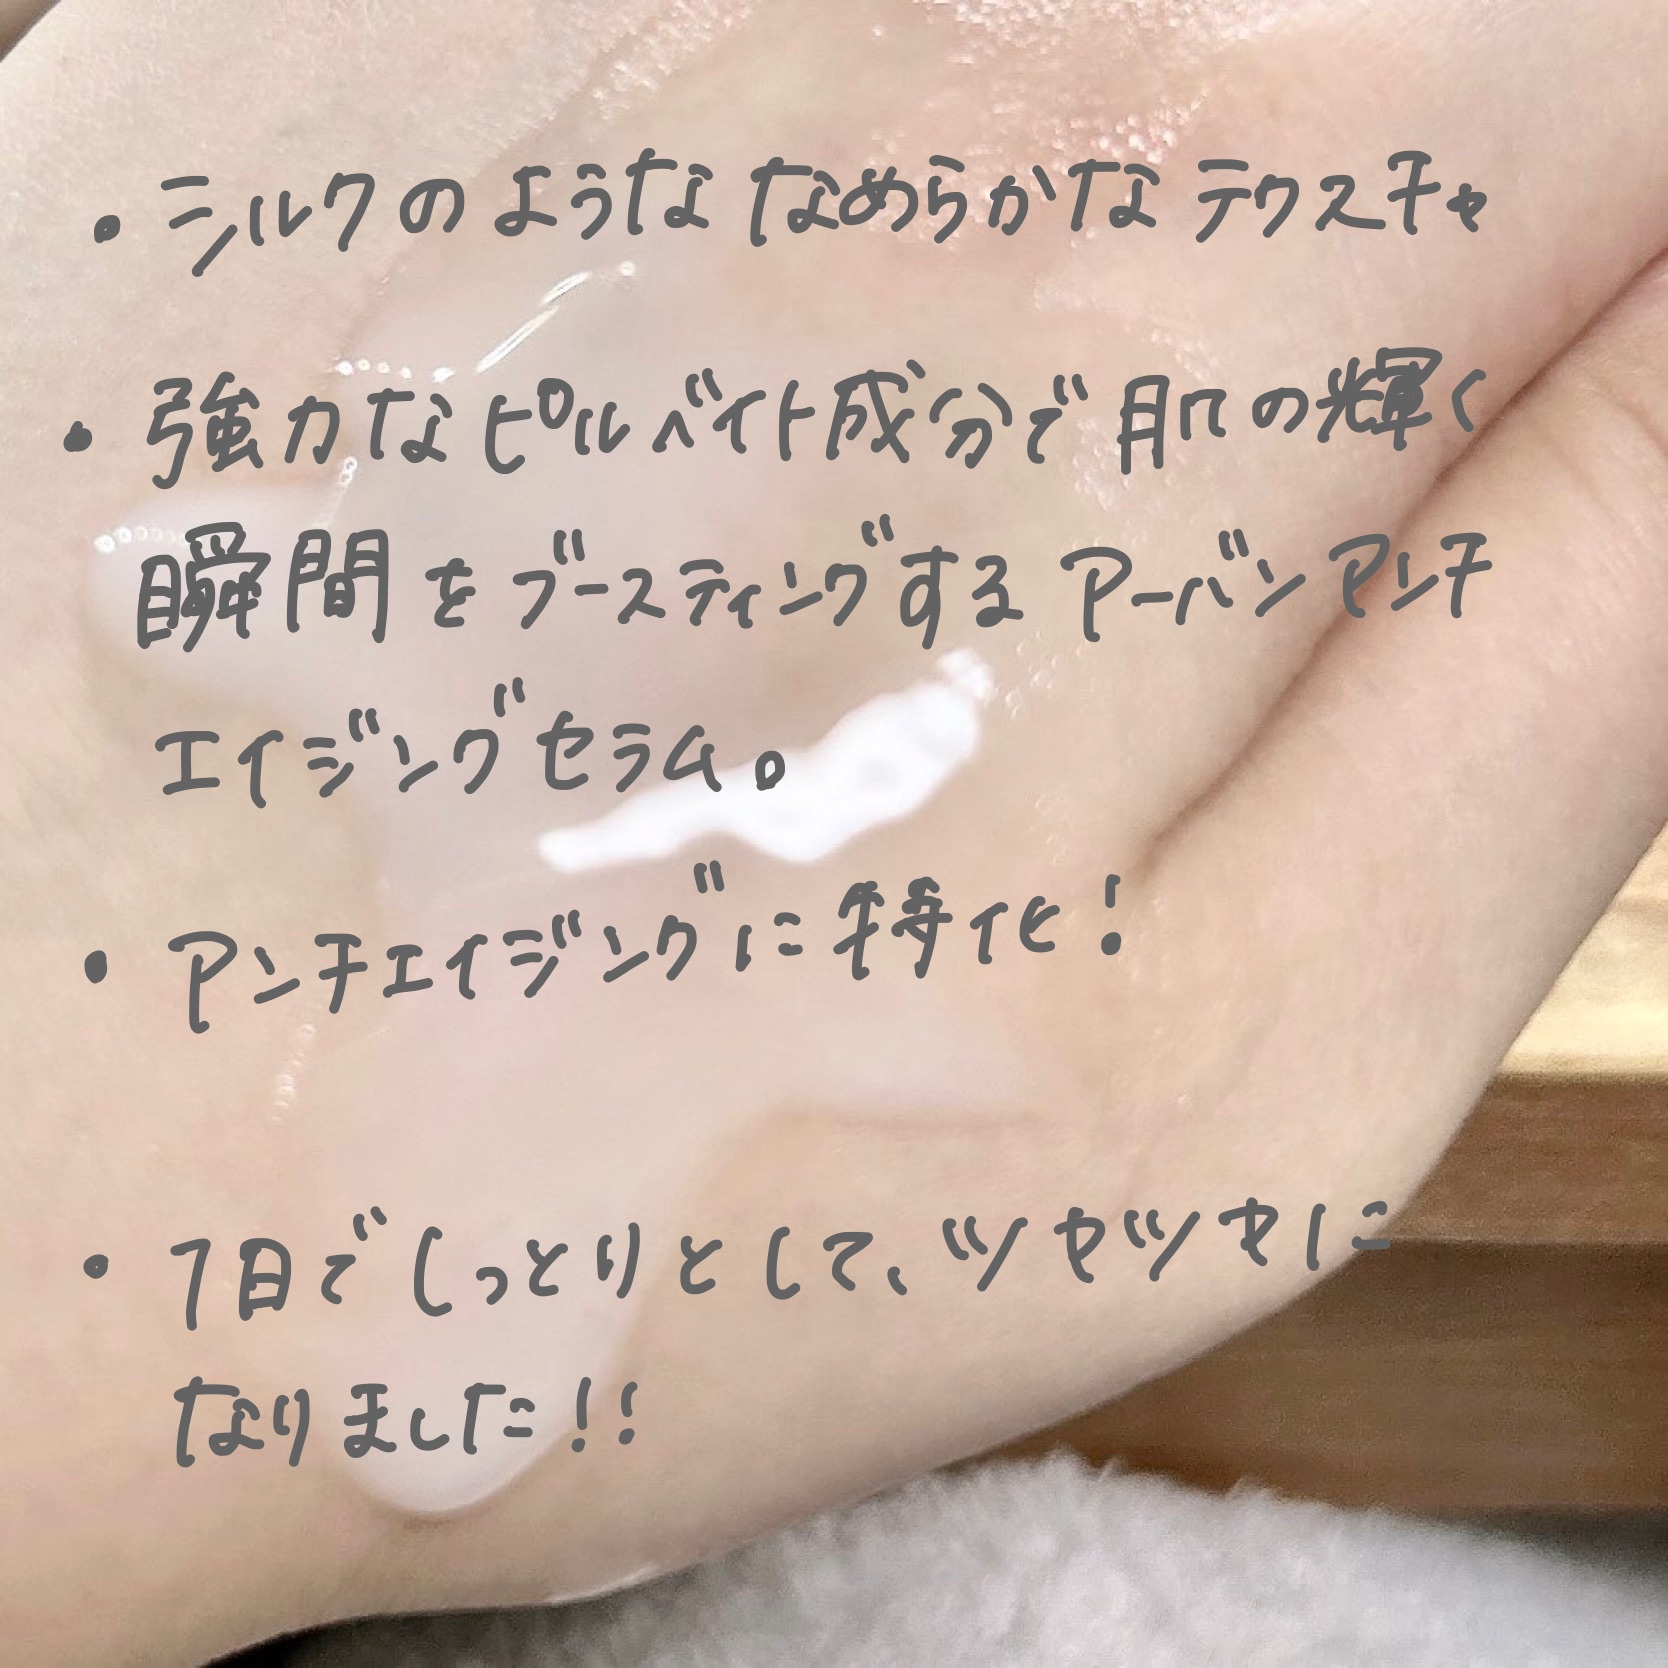 ・シルクのような なめらかな テクスチャ
・強力な ピルベイト成分で 肌の輝く
瞬間をブースティングする アーバンアンチ
エイジングセラム。
・アンチエイジングに特化!
・7日でしっとりとして、ツヤツヤに
なりました!!